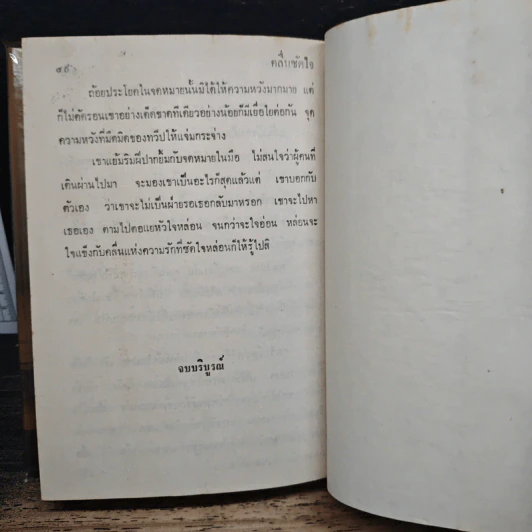 ๔๙ คลื่นซัดใจ
ถ้อยประโยคในจดหมายนั้นมิได้ให้ความหวังมากมาย แต่
ก็ไม่ตัดรอนเขาอย่างเด็ดขาดทีเดียวอย่างน้อยก็มีเยื่อใยต่อกัน จุด
ความหวังที่มืดมิดของทวีปให้แจ่มกระจ่าง
เขาแย้มริมฝีปากยิ้มกับจดหมายในมือ ไม่สนใจว่าผู้คนที่
เดินผ่านไปมา จะมองเขาเป็นอะไรก็สุดแล้วแต่ เขาบอกกับ
ตัวเอง ว่าเขาจะไม่เป็นฝ่ายรอเธอกลับมาหรอก เขาจะไปหา
เธอเอง ตามไปตอแยหัวใจหล่อน จนกว่าจะใจอ่อน หล่อนจะ
ใจแข็งกับคลื่นแห่งความรักที่ซัดใจหล่อนก็ให้รู้ไปสิ
จบบริบูรณ์